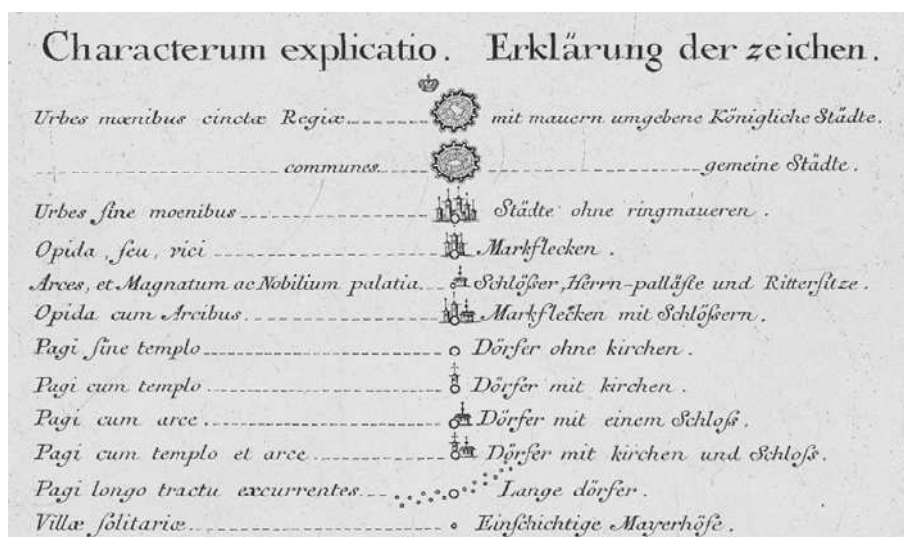 Characterum explicatio. Erklärung der zeichen.
Urbes mœnibus cinctæ Regiæ mit mauern umgebene Königliche Städte.
communes gemeine Städte.
Urbes ſine moenibus Städte ohne ringmaueren.
Opida, ſeu, vici Markflecken.
Arces, et Magnatum ac Nobilium palatia Schlößer, Herrn-palläſte und Ritterſitze.
Opida cum Arcibus Markflecken mit Schlößern.
Pagi ſine templo Dörfer ohne kirchen.
Pagi cum templo Dörfer mit kirchen.
Pagi cum arce Dörfer mit einem Schloß.
Pagi cum templo et arce Dörfer mit kirchen und Schloß.
Pagi longo tractu excurrentes Lange dörfer.
Villæ ſolitariæ Einſchichtige Mayerhöfe.